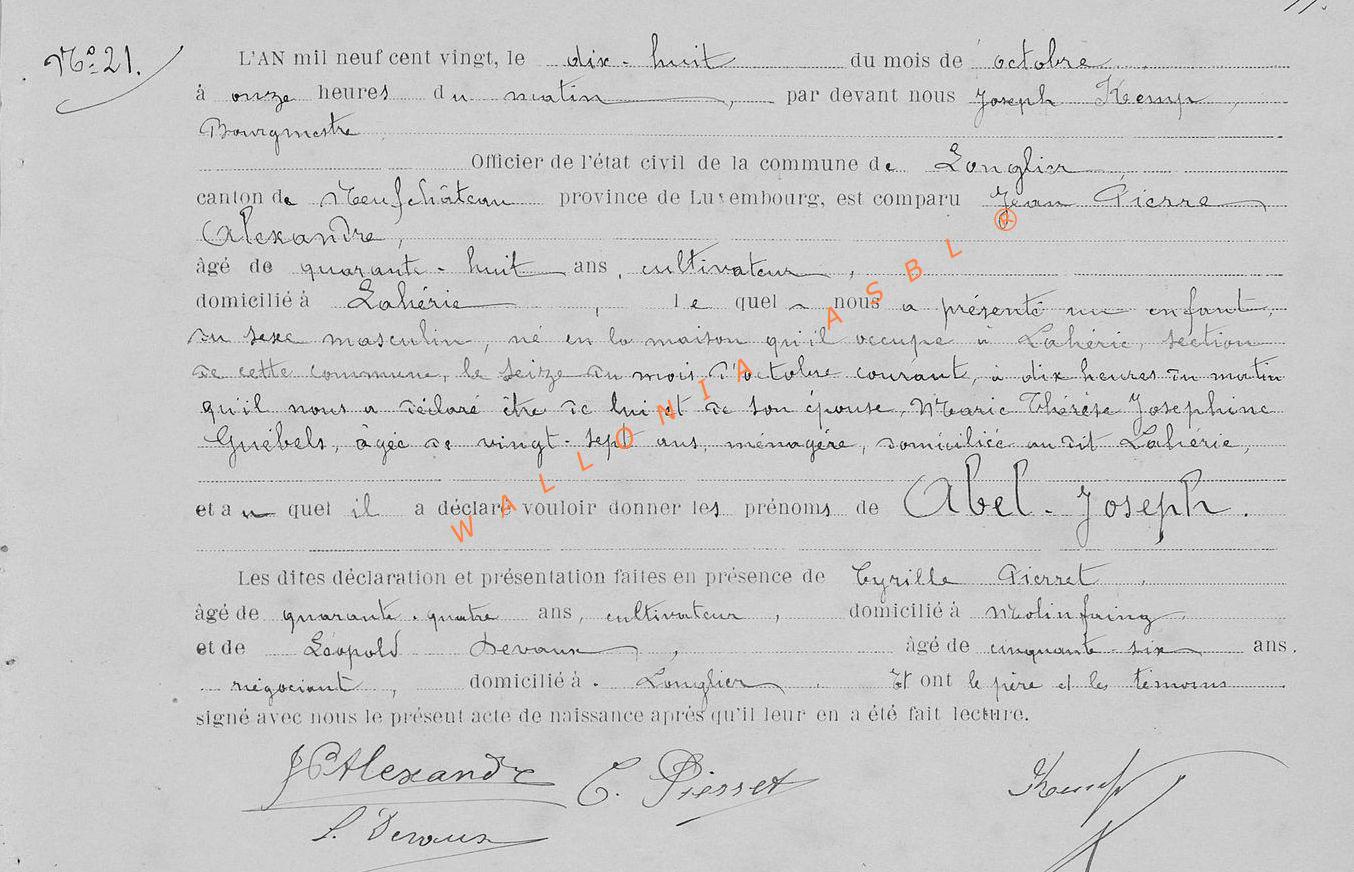 No 21.
L'AN mil neuf cent vingt, le dix-huit du mois de octobre
à onze heures du matin, par devant nous Joseph Kemp,
Bourgmestre
Officier de l'état civil de la commune de Longlier,
canton de Neufchâteau province de Luxembourg, est comparu Jean Pierre
Alexandre,
âgé de quarante-huit ans, cultivateur,
domicilié à Lahérie, lequel nous a présenté un enfant
du sexe masculin, né en la maison qu'il occupe à Lahérie, section
de cette commune, le seize du mois d'octobre courant, à dix heures du matin
qu'il nous a déclaré être de lui et de son épouse, Marie Thérèse Josephine
Guébels, âgée de vingt-sept ans, ménagère, domiciliée au dit Lahérie,
et auquel il a déclaré vouloir donner les prénoms de Abel-Joseph.
Les dites déclaration et présentation faites en présence de Cyrille Pierret
âgé de quarante-quatre ans, cultivateur, domicilié à Molinfaing
et de Léopold Devaux, âgé de cinquante-six ans.
négociant, domicilié à Longlier. Et ont le père et les témoins
signé avec nous le présent acte de naissance après qu'il leur en a été fait lecture.
JPAlexandre C. Pierret Kemp
L. Devaux
WALLONIA ASBL ®